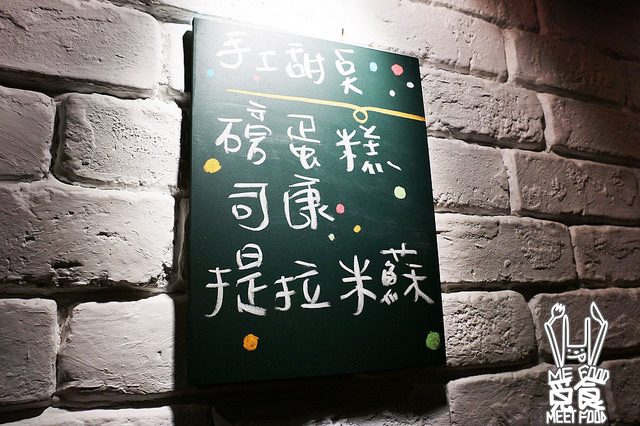 手工甜莫
磅蛋糕
司康
提拉米蘇
ME FOOD
覓食
MEET FOOD